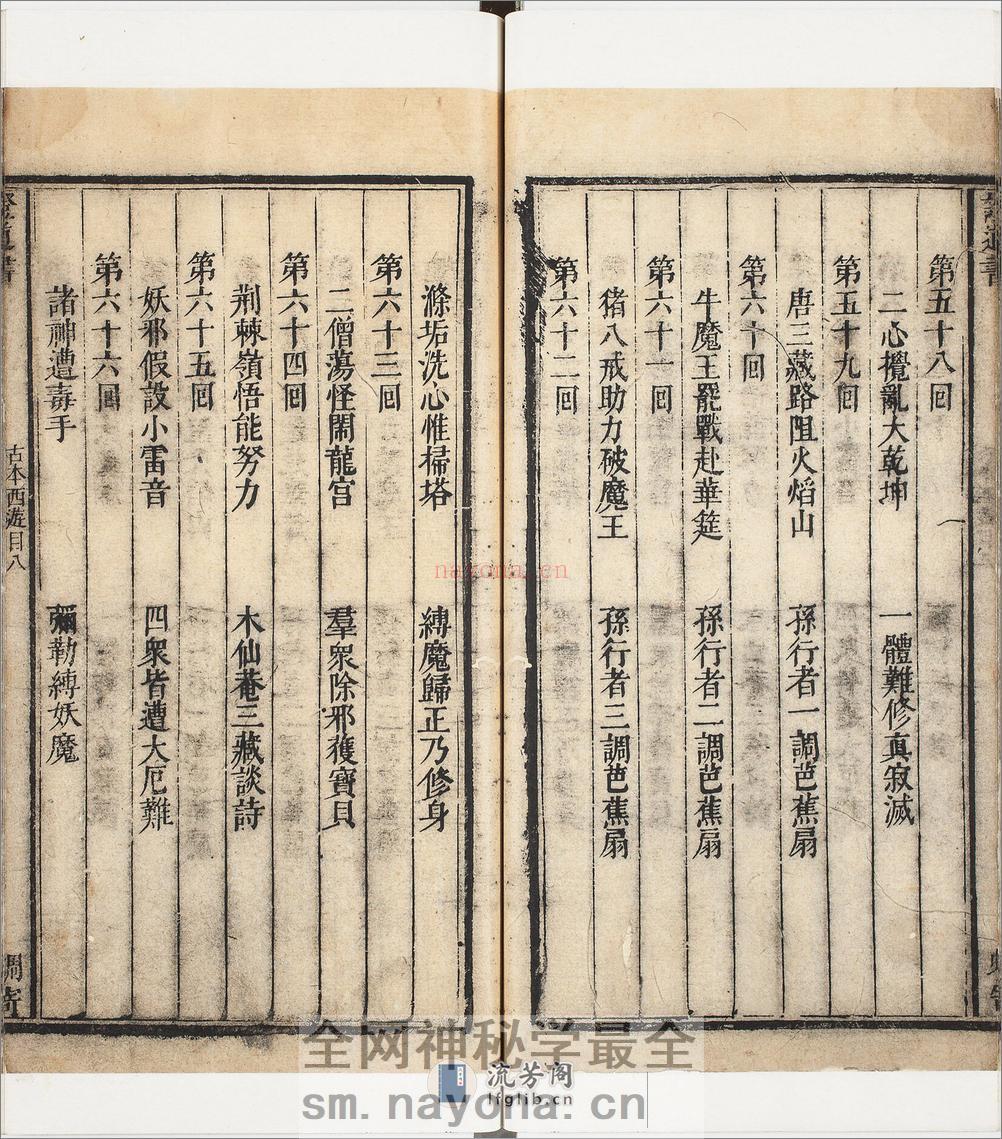 第五十八回
二心攪亂大乾坤 一體難修真寂滅
第五十九回
唐三藏路阻火焰山 孫行者一調芭蕉扇
第六十回
牛魔王罷戰赴華筵 孫行者二調芭蕉扇
第六十一回
猪八戒助力破魔王 孫行者三調芭蕉扇
第六十二回
滌垢洗心惟掃塔 縛魔歸正乃修身
第六十三回
二僧蕩怪閙龍宫 羣衆除邪獲寶貝
第六十四回
荆棘嶺悟能努力 木仙菴三藏談詩
第六十五回
妖邪假設小雷音 四衆皆遭大厄難
第六十六回
諸神遭毒手 彌勒縛妖魔
古本西遊目八
nayona.cn
全网神秘学最全
流芳阁
lfglib.cn
sm.nayona.cn